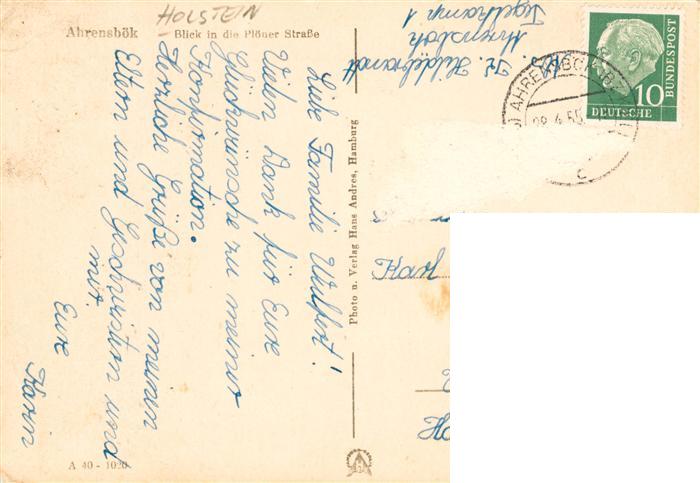 HOLSTEIN
Ahrensbök Blick in die Plöner Straße
Liebe Familie Wulfert!
Vielen Dank für Eure
Glückwünsche zu meiner
Konfirmation.
Herzliche Grüße von meinen
Eltern und Geschwistern und
mir.
Eure
Karin
A 40 - 1020
Photo u. Verlag Hans Andres, Hamburg
Hildebrandt
Ahrensbök
Tegelkamp 1
10
DEUTSCHE
BUNDESPOST
AHRENSBÖK
C